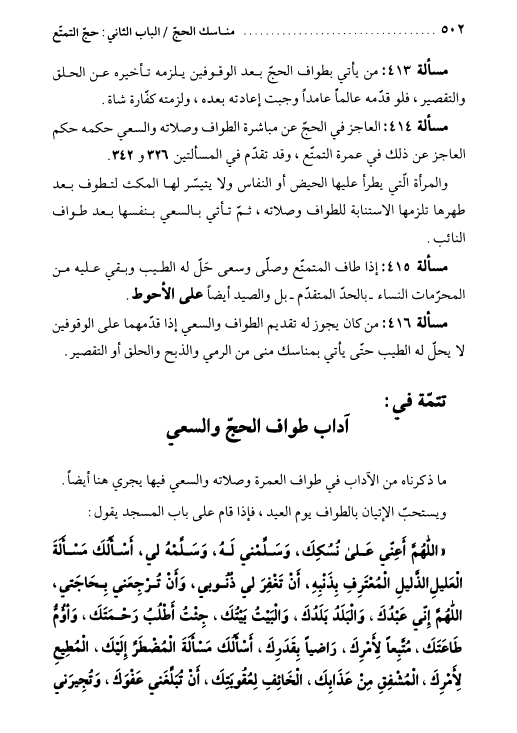 ٥٠٢ ................................... مناسك الحجّ / الباب الثاني : حجّ التمتّع
مسألة ٤١٣: من يأتي بطواف الحجّ بعد الوقوفين يلزمه تأخيره عن الحلق
والتقصير ، فلو قدّمه عالماً عامداً وجبت إعادته بعده ، ولزمته كفّارة شاة .
مسألة ٤١٤: العاجز في الحجّ عن مباشرة الطواف وصلاته والسعي حكمه حكم
العاجز عن ذلك في عمرة التمتّع ، وقد تقدّم في المسألتين ٣٢٦ و ٣٤٢.
والمرأة الّتي يطرأ عليها الحيض أو النفاس ولا يتيسّر لها المكث لتطوف بعد
طهرها تلزمها الاستنابة للطواف وصلاته ، ثمّ تأتي بالسعي بنفسها بعد طواف
النائب .
مسألة ٤١٥: إذا طاف المتمتّع وصلّى وسعى حَلّ له الطيب وبقي عليه من
المحرّمات النساء ـ بالحدّ المتقدّم ـ بل والصيد أيضاً على الأحوط .
مسألة ٤١٦: من كان يجوز له تقديم الطواف والسعي إذا قدّمهما على الوقوفين
لا يحلّ له الطيب حتّى يأتي بمناسك منى من الرمي والذبح والحلق أو التقصير .
تتمّة في :
آداب طواف الحجّ والسعي
ما ذكرناه من الآداب في طواف العمرة وصلاته والسعي فيها يجري هنا أيضاً .
ويستحبّ الإتيان بالطواف يوم العيد ، فإذا قام على باب المسجد يقول :
« اللّهُمَّ أَعِنِّي عَـلىٰ نُسُكِكَ ، وَسَلِّمْني لَـهُ ، وَسَلِّمْهُ لي ، أَسْأَلُكَ مَسْـأَلَةَ
الْعَليلِ الذَّليلِ الْمُعْتَرِفِ بِذَنْبِهِ ، أَنْ تَغْفِرَ لي ذُنُـوبي ، وَأَنْ تُـرْجِعَني بِـحَاجَتي ،
اللّهُمَّ إِنِّي عَبْدُكَ ، وَالْبَلَدُ بَلَدُكَ ، وَالْبَيْتُ بَيْتُكَ ، جِئْتُ أَطْلُبُ رَحْـمَتَكَ ، وَأَؤُمُّ
طَاعَتَكَ ، مُتَّبِعاً لِأَمْرِكَ ، رَاضِياً بِقَدَرِكَ ، أَسْأَلُكَ مَسْأَلَةَ الْمُضْطَرِّ إِلَيْكَ ، الْمُطِيعِ
لِأَمْرِكَ ، الْمُشْفِقِ مِنْ عَذَابِكَ ، الْخَائِفِ لِعُقُوبَتِكَ ، أَنْ تُبَلِّغَني عَفْوَكَ ، وَتُجِيرَني